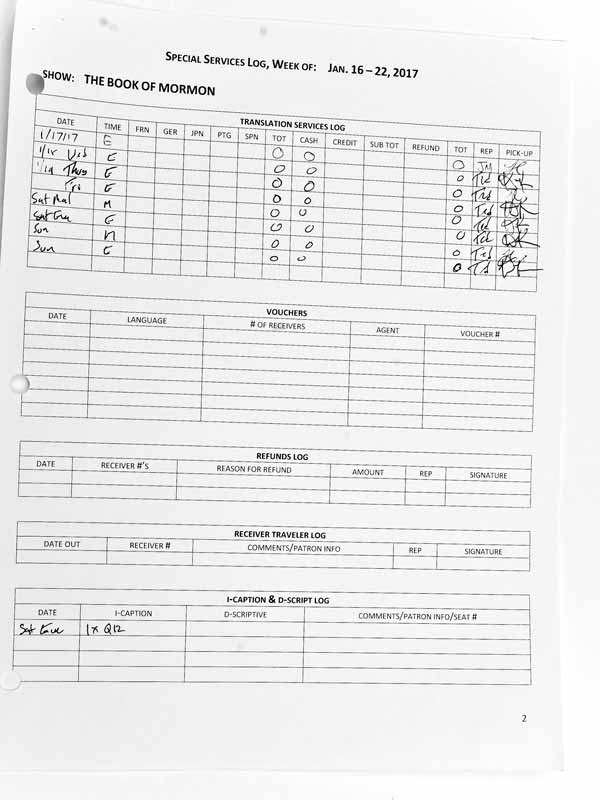 SPECIAL SERVICES LOG, WEEK OF: JAN. 16 – 22, 2017
SHOW: THE BOOK OF MORMON
TRANSLATION SERVICES LOG
DATE TIME FRN GER JPN PTG SPN TOT CASH CREDIT SUB TOT REFUND TOT REP PICK-UP
1/17/17 E 0 0 0
1/18 Wed E 0 0 0
1/19 Thus E 0 0 0
Fri E 0 0 0
Sat Mat M 0 0 0
Sat Eve E 0 0 0
Sun M 0 0 0
Sun E 0 0 0
VOUCHERS
DATE LANGUAGE # OF RECEIVERS AGENT VOUCHER #
REFUNDS LOG
DATE RECEIVER #'S REASON FOR REFUND AMOUNT REP SIGNATURE
RECEIVER TRAVELER LOG
DATE OUT RECEIVER # COMMENTS/PATRON INFO REP SIGNATURE
I-CAPTION & D-SCRIPT LOG
DATE I-CAPTION D-SCRIPTIVE COMMENTS/PATRON INFO/SEAT #
Sat Eve 1x Q12
2